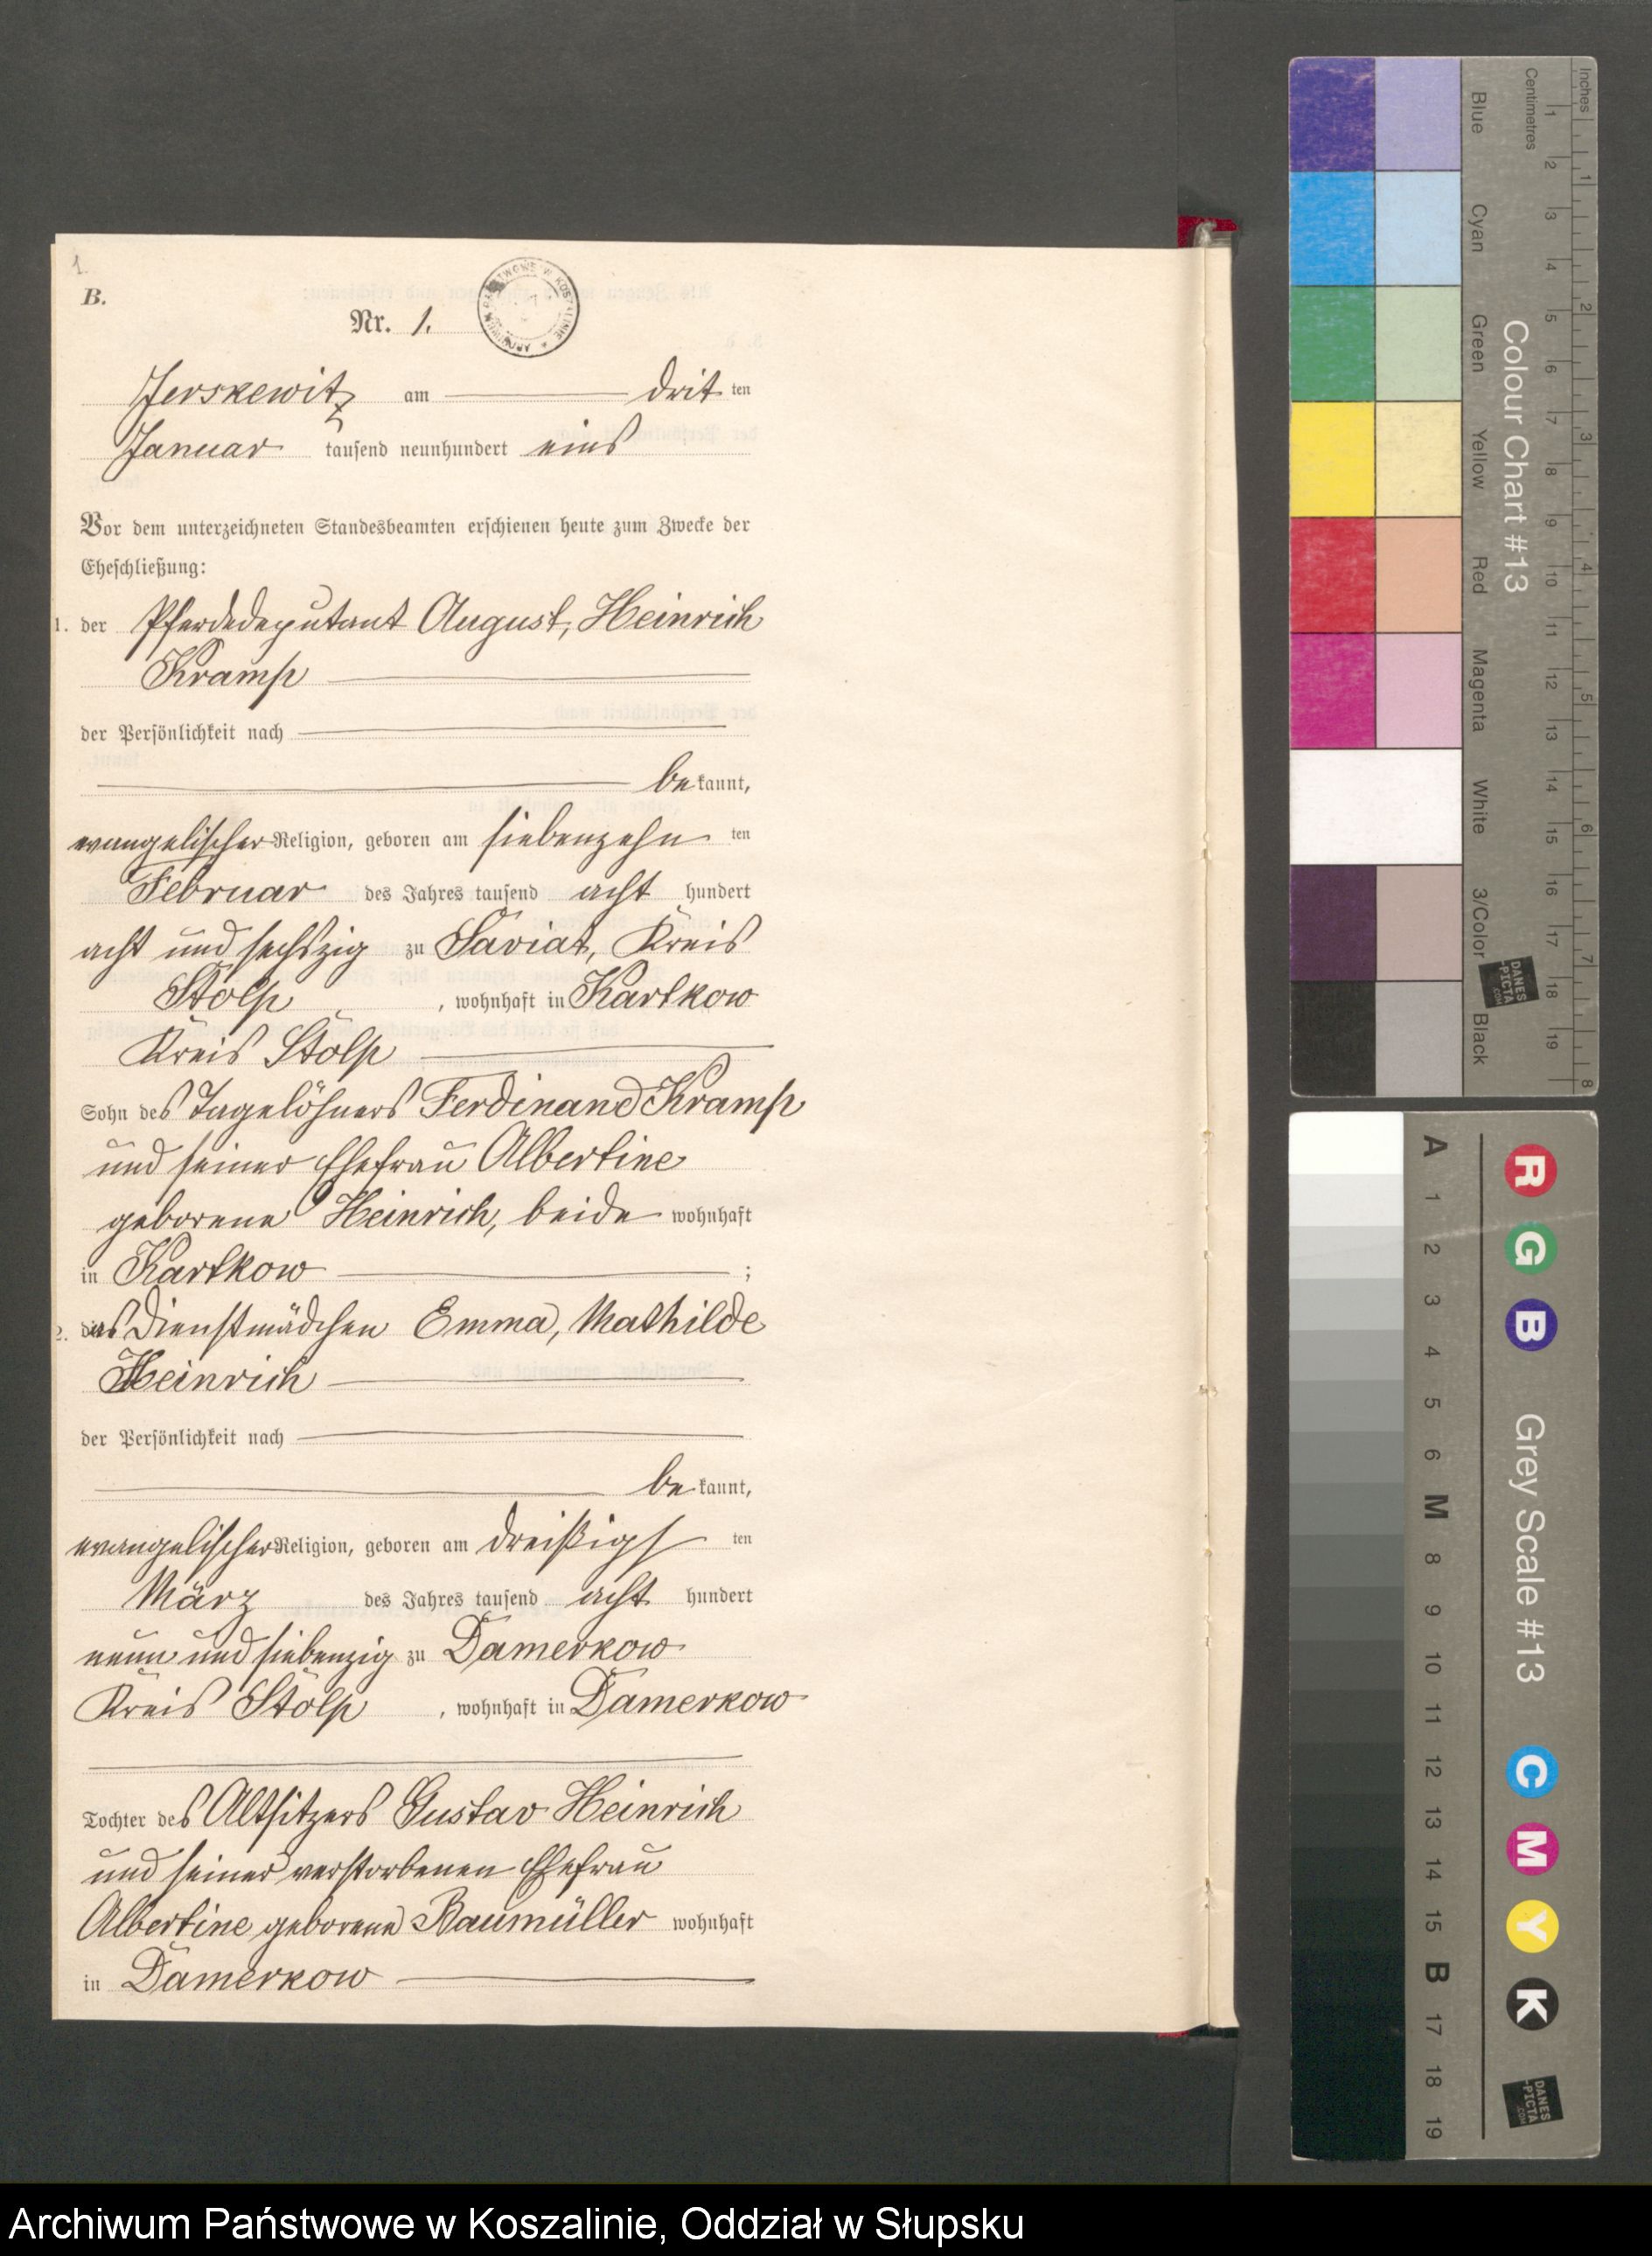 1.
B.
Nr. 1.
ARCHIWUM PAŃSTWOWE W KOSZALINIE *
Jerskewitz am dritten
Januar tausend neunhundert eins
Vor dem unterzeichneten Standesbeamten erschienen heute zum Zwecke der
Eheschließung:
1. der Pferdedeputant August, Heinrich
Kramp
der Persönlichkeit nach
bekannt,
evangelischer Religion, geboren am siebenzehnten
Februar des Jahres tausend achthundert
acht und sechszig zu Saviat, Kreis
Stolp, wohnhaft in Kartkow
Kreis Stolp
Sohn des Tagelöhners Ferdinand Kramp
und seiner Ehefrau Albertine
geborene Heinrich, beide wohnhaft
in Kartkow ;
2. das Dienstmädchen Emma, Mathilde
Heinrich
der Persönlichkeit nach
bekannt,
evangelischer Religion, geboren am dreißigsten
März des Jahres tausend achthundert
neun und siebenzig zu Damerkow
Kreis Stolp, wohnhaft in Damerkow
Tochter des Altsitzers Gustav Heinrich
und seiner verstorbenen Ehefrau
Albertine geborene Baumüller wohnhaft
in Damerkow
Inches 1 2 3 4 5 6 7 8
Centimetres 1 2 3 4 5 6 7 8 9 10 11 12 13 14 15 16 17 18 19
Colour Chart #13
Blue Cyan Green Yellow Red Magenta White 3/Color Black
DANES
-PICTA
.COM
A 1 2 3 4 5 6 M 8 9 10 11 12 13 14 15 B 17 18 19
R G B Grey Scale #13 C M Y K
DANES
-PICTA
.COM
Archiwum Państwowe w Koszalinie, Oddział w Słupsku